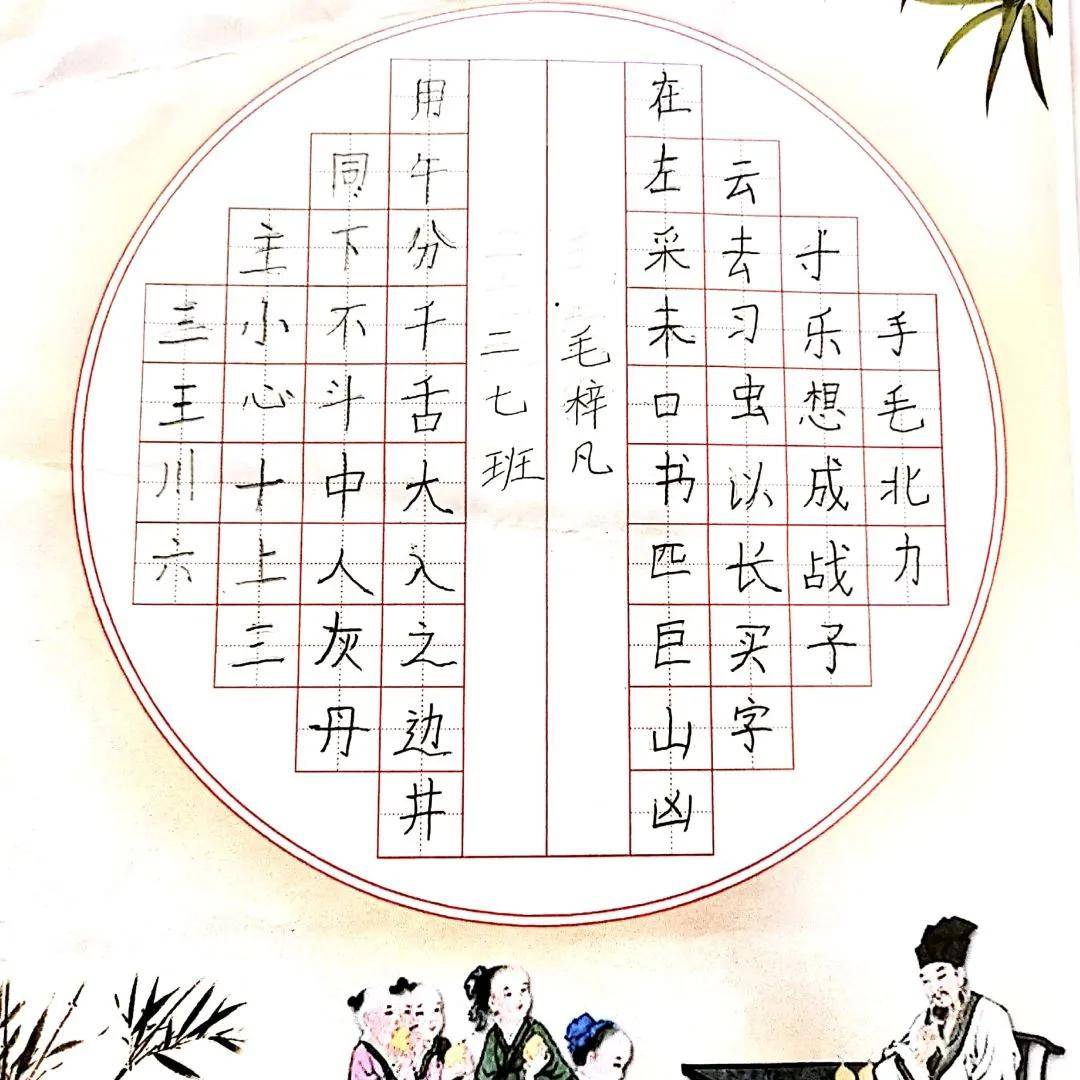 手毛北力
寸乐想成战子
云去习虫以长买字
在左采未口书匹巨山凶
毛梓凡
二七班
用午分千舌大入之边井
同下不斗中人灰丹
主小心十上三
三王川六